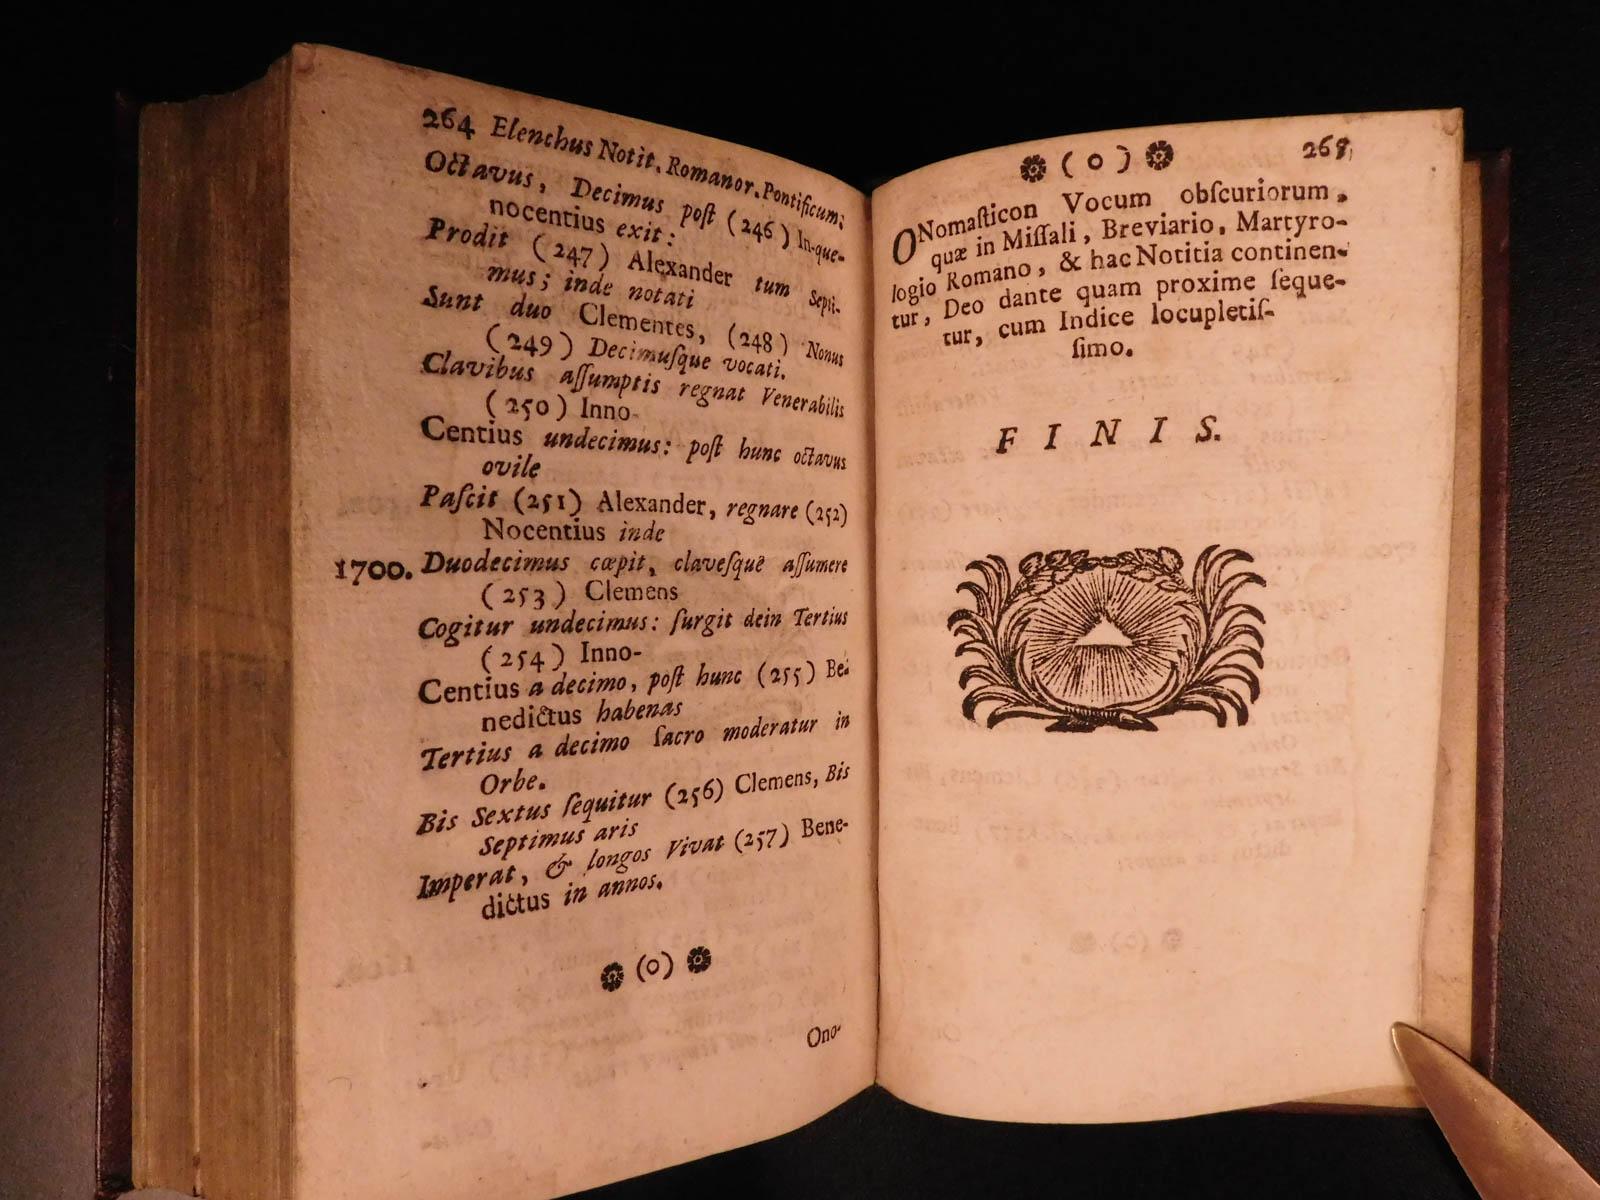 264 Elenchus Notit. Romanor. Pontificum:
Octavus, Decimus poſt (246) In-
nocentius exit: que-
Prodit (247) Alexander tum Septi-
mus; inde notati
Sunt duo Clementes, (248) Nonus
(249) Decimuſque vocati.
Clavibus aſſumptis regnat Venerabilis
(250) Inno-
Centius undecimus: poſt hunc octavus
ovile
Paſcit (251) Alexander, regnare (252)
Nocentius inde
1700. Duodecimus cœpit, claveſquē aſſumere
(253) Clemens
Cogitur undecimus: ſurgit dein Tertius
(254) Inno-
Centius a decimo, poſt hunc (255) Be-
nedictus habenas
Tertius a decimo ſacro moderatur in
Orbe.
Bis Sextus ſequitur (256) Clemens, Bis
Septimus aris
Imperat, & longos Vivat (257) Bene-
dictus in annos.
(o)
Ono-
(o) 265
ONomaſticon Vocum obſcuriorum,
quæ in Miſſali, Breviario, Martyro-
logio Romano, & hac Notitia continen-
tur, Deo dante quam proxime ſeque-
tur, cum Indice locupletiſ-
ſimo.
FINIS.